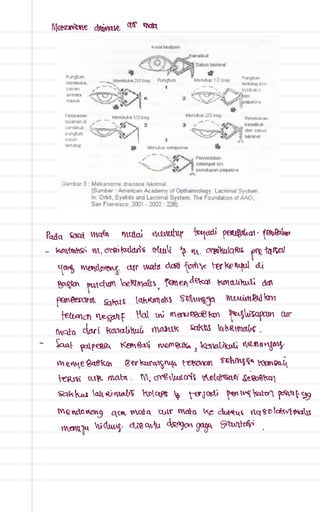 Mekanisme drainase air mata
Awal kedipan
Kanalikuli
Sakus lakrimal
Pungtum membuka, cairan airmata masuk
Membuka 2/3 bag
Pungtum
Menutup 1/2 bag
Pungtum tertutup krn
palpebra
1
6
2
Pelepasan tekanan di canalikuli, pungtum masih tertutup
Membuka 1/3 bag
Menutup 2/3 bag
Penekanan kanalikuli dan sakus lakrimal
5
3
4
Menutup sempurna
Penyedotan
setempat krn
penutupan palpebra
Gambar 3 : Mekanisme drainase lakrimal.
(Sumber : American Academy of Opthalmology. Lacrimal System.
In: Orbit, Eyelids and Lacrimal System. The Foundation of AAO,
San Fransisco: 2001 - 2002 : 228).
Pada saat mata mulai menutup terjadi perubahan-perubahan
- Kontraksi m. orbikularis okuli & m. orbikularis pre tarsal
yang mendorong air mata dari fornix terkumpul di
bagian punctum lakrimalis, pemendekan kanalikuli dan
pembesaran sakus lakrimalis sehingga menimbulkan
tekanan negatif Hal ini menyebabkan penghisapan air
mata dari kanalikuli masuk sakus lakrimalis.
- Saat palpebra kembali membuka, kanalikuli memanjang
menyebabkan berkurangnya tekanan sehingga kembali
terisi air mata. M. orbikularis relaksasi sebabkan
sakkus lakrimalis kolaps & terjadi peningkatan positif yg
mendorong air mata ke duktus nasolakrimalis
menuju hidung. dibantu dengan gaya gravitasi.